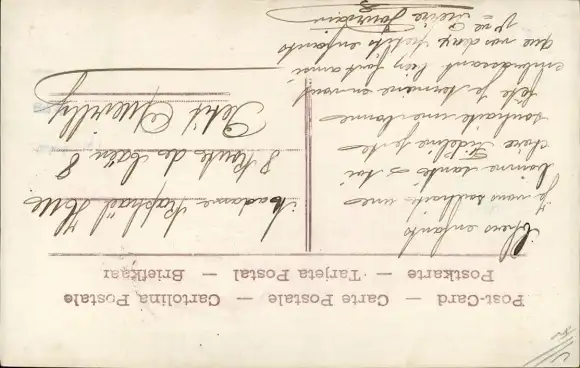 Post-Card — Carte Postale — Cartolina Postale
Postkarte — Tarjeta Postal — Briefkaar
Chers enfants
Je vous souhaite une
bonne santé & toi
chère Fideline je te
souhaite une bonne
fête je termine en vous
embrassant bien fort ainsi
que vos deux petits enfants
Vve Jourdain
Madame Raphaël
8 Route de Caën 8
Petit Quevilly